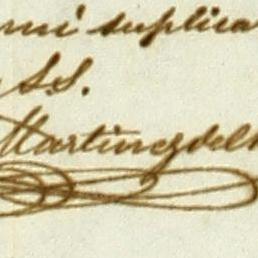 mi suplica
S.S.
Martinez del